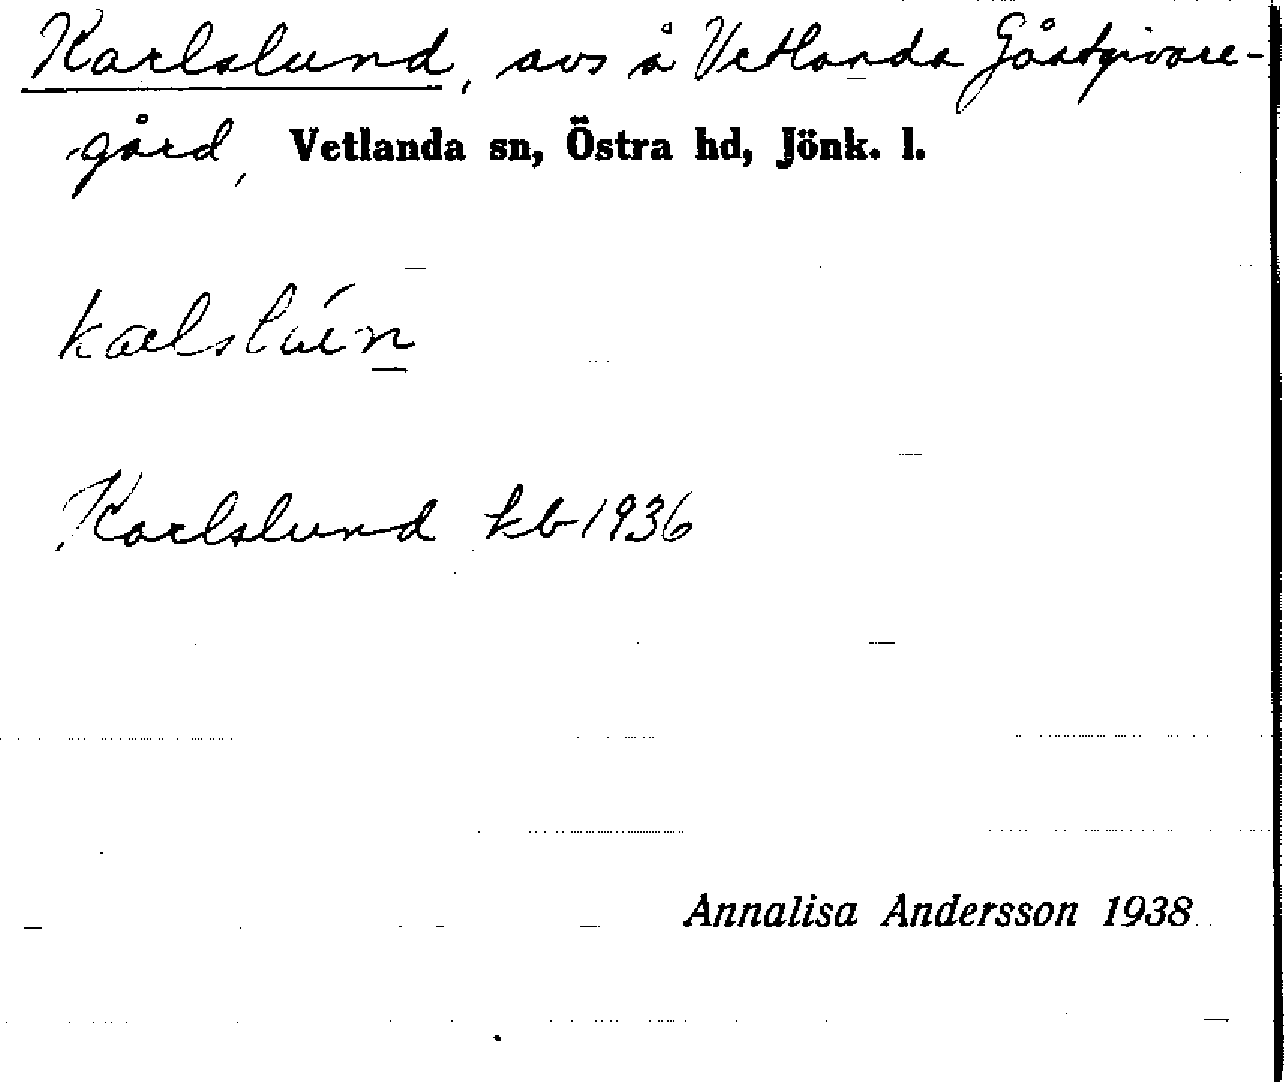 Karlslund, avs å Vetlanda Gästgivare-
gård, Vetlanda sn, Östra hd, Jönk. l.
Karlslund kb 1936
Annalisa Andersson 1938